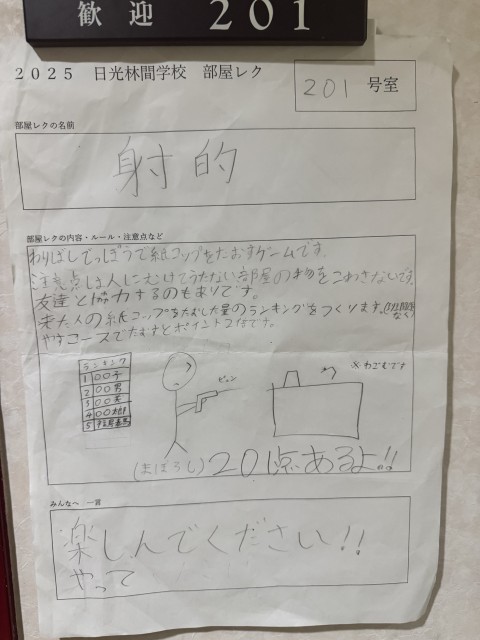 歓迎 201
2025 日光林間学校 部屋レク
201 号室
部屋レクの名前
射的
部屋レクの内容・ルール・注意点など
わりばしでっぽうで紙コップをたおすゲームです。
注意点は人にむけてうたない部屋の物をこわさないです。
友達と協力するのもありです。
来た人の紙コップをたおした量のランキングをつくります。
やすコースでたおすとポイント2倍です。
ランキング
1 〇〇子
2 〇〇男
3 〇〇美
4 〇〇太郎
5
ピュン
※わごむです
(まぼろし) 20点あるよ!!
みんなへ 一言
楽しんでください!!
やって